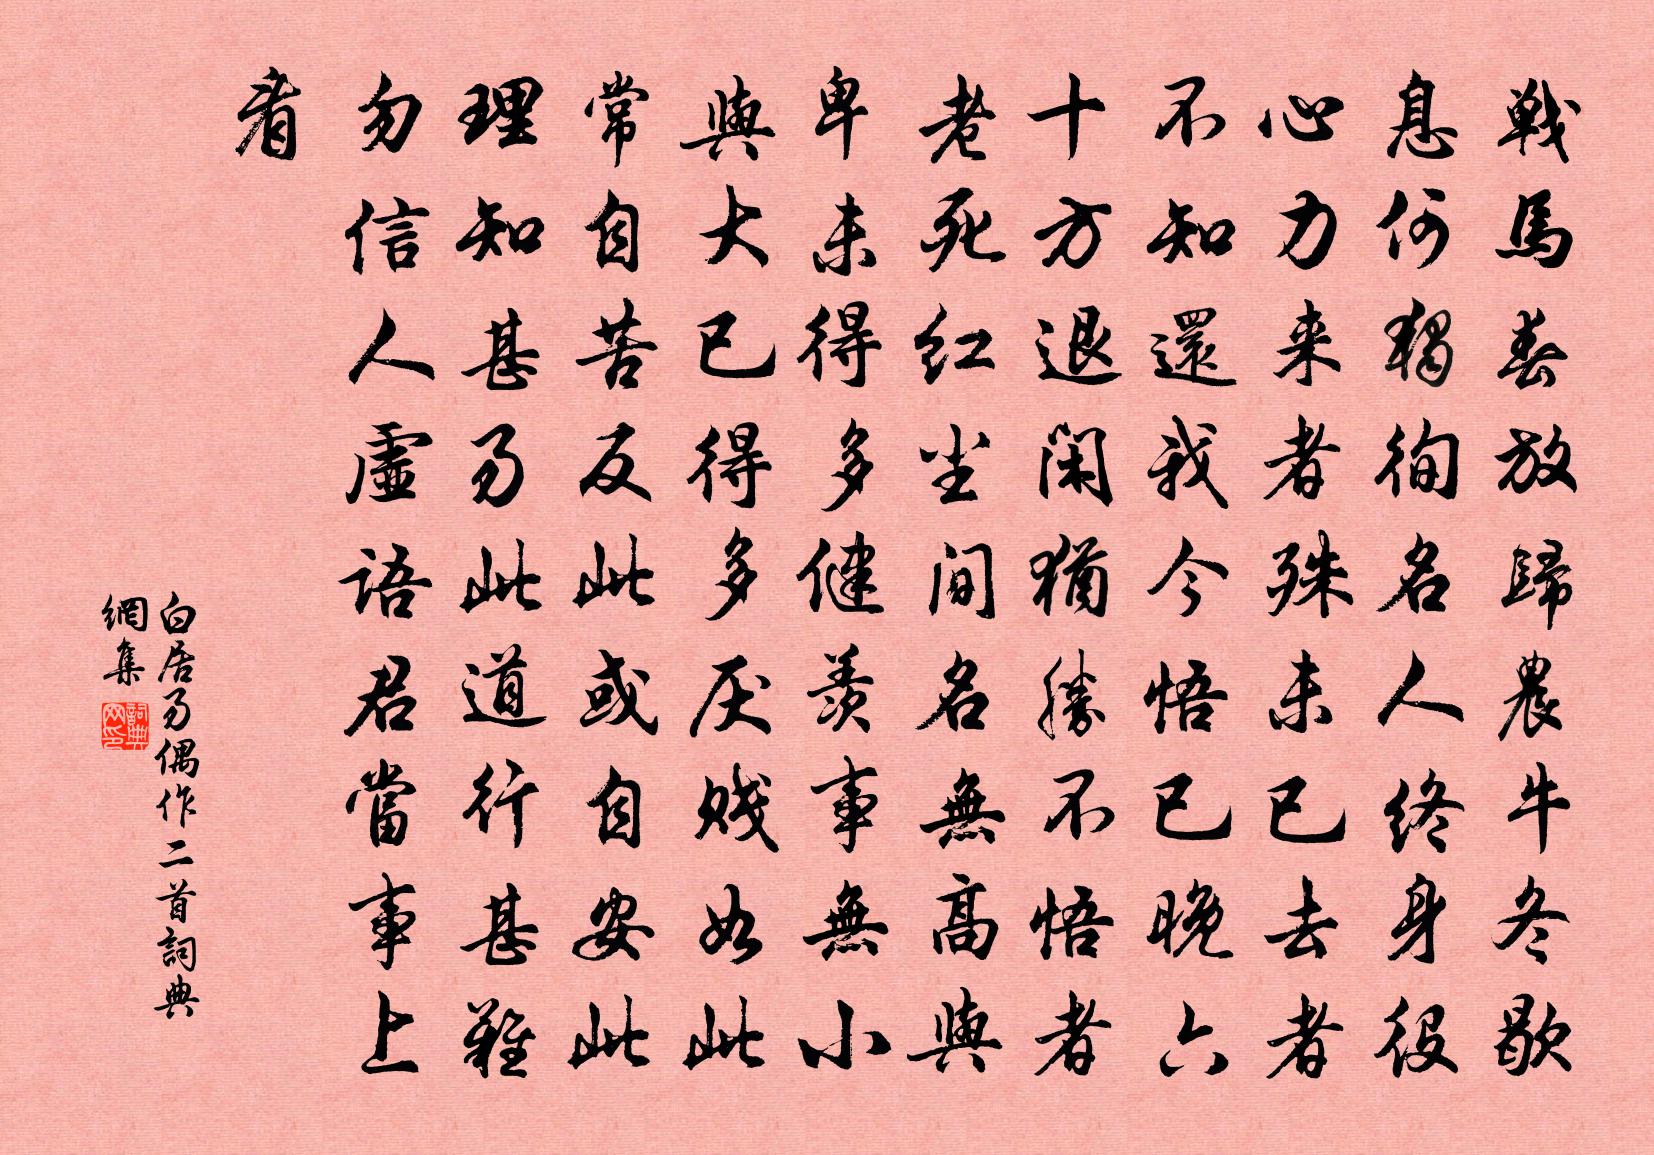 戦馬春放歸農牛冬歇
息何獨徇名人終身役
心力来者殊未已去者
不知還我今悟已晚六
十方退閑猶勝不悟者
老死红尘间名無高與
卑未得多健羨事無小
與大已得多厌贱如此
常自苦反此或自安此
理知甚易此道行甚難
勿信人虛语君當事上
看
白居易偶作二首詞典
網集
詞典网印